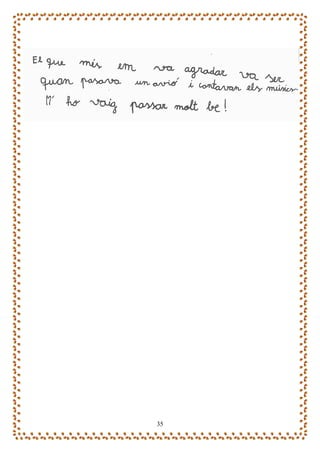 El que mes em va agradar va ser
quan pasava un avió i contavan els músics.
M' ho vaig passar molt be!
35